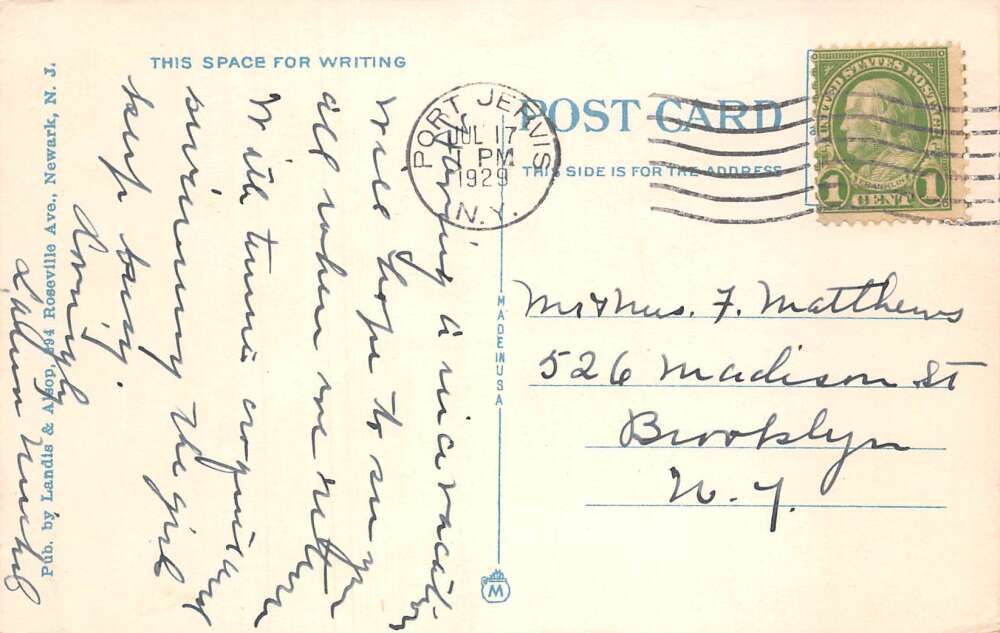 THIS SPACE FOR WRITING
POST CARD
THIS SIDE IS FOR THE ADDRESS
PORT JERVIS
JUL 17
1 PM
1929
N.Y.
UNITED STATES POSTAGE
FRANKLIN
1 CENT 1
Having a nice vacation
and hope to see you
all when we return
With tennis croquet and
swimming the girls
keep busy.
Lovingly
Mr & Mrs. F. Matthews
526 Madison St
Brooklyn
N.Y.
MADE IN USA
M
Pub. by Landis & Alsop, 394 Roseville Ave., Newark, N. J.